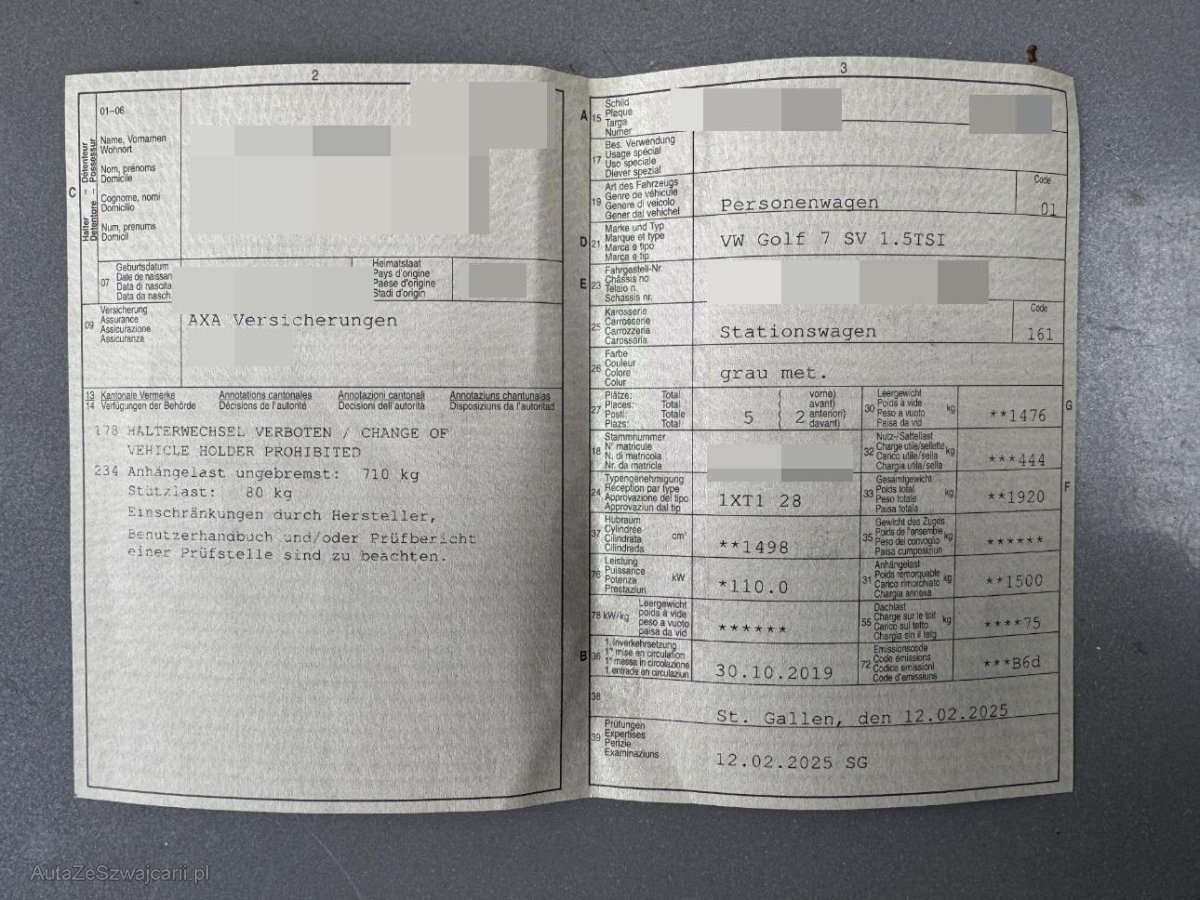 2
01–06
Halter – Détenteur
Detentore – Possessur
C
Name, Vornamen
Wohnort
Nom, prénoms
Domicile
Cognome, nomi
Domicilio
Num, prenums
Domicil
07
Geburtsdatum
Date de naissan
Data di nascita
Data da nasch.
Heimatstaat
Pays d'origine
Paese d'origine
Stadi d'origin
09
Versicherung
Assurance
Assicurazione
Assicuranza
AXA Versicherungen
13 Kantonale Vermerke Annotations cantonales Annotazioni cantonali Annotaziuns chantunalas
14 Verfügungen der Behörde Décisions de l'autorité Decisioni dell'autorità Disposiziuns da l'autoritad
178 HALTERWECHSEL VERBOTEN / CHANGE OF
VEHICLE HOLDER PROHIBITED
234 Anhängelast ungebremst: 710 kg
Stützlast: 80 kg
Einschränkungen durch Hersteller,
Benutzerhandbuch und/oder Prüfbericht
einer Prüfstelle sind zu beachten.
3
A 15
Schild
Plaque
Targa
Numer
17
Bes. Verwendung
Usage spécial
Uso speciale
Diever spezial
19
Art des Fahrzeugs
Genre de véhicule
Genere di veicolo
Gener dal vehichel
Personenwagen
Code
01
D 21
Marke und Typ
Marque et type
Marca e tipo
Marca e tip
VW Golf 7 SV 1.5TSI
E 23
Fahrgestell-Nr
Châssis no
Telaio n.
Schassis nr.
25
Karosserie
Carrosserie
Carrozzeria
Carossaria
Stationswagen
Code
161
26
Farbe
Couleur
Colore
Colur
grau met.
27
Plätze: Total
Places: Total
Posti: Totale
Plazs: Total
5
2
vorne)
avant)
anteriori)
davant)
30
Leergewicht
Poids à vide
Peso a vuoto
Paisa da vid
kg
**1476
G
18
Stammnummer
N° matricule
N. di matricola
Nr. da matricla
32
Nutz-/Sattellast
Charge utile/sellette
Carico utile/sella
Chargia utila/sella
kg
***444
24
Typengenehmigung
Réception par type
Approvazione del tipo
Approvaziun dal tip
1XT1 28
33
Gesamtgewicht
Poids total
Peso totale
Paisa totala
kg
**1920
F
37
Hubraum
Cylindrée
Cilindrata
Cilindrada
cm³
**1498
35
Gewicht des Zuges
Poids de l'ensemble
Peso del convoglio
Paisa cumposiziun
kg
******
76
Leistung
Puissance
Potenza
Prestaziun
kW
*110.0
31
Anhängelast
Poids remorquable
Carico rimorchiato
Chargia annexa
kg
**1500
78 kW/kg
Leergewicht
poids à vide
peso a vuoto
paisa da vid
******
55
Dachlast
Charge sur le toit
Carico sul tetto
Chargia sin il tetg
kg
****75
B 36
1. Inverkehrsetzung
1re mise en circulation
1a messa in circolazione
1. entrada en circulaziun
30.10.2019
72
Emissionscode
Code émissions
Codice emissioni
Code d'emissiuns
***B6d
38
St. Gallen, den 12.02.2025
39
Prüfungen
Expertises
Perizie
Examinaziuns
12.02.2025 SG
AutaZeSzwajcarii.pl